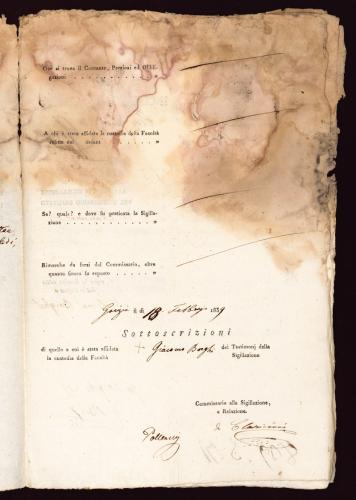 Ove si trova il Contante, Preziosi ed Obbli-
gazioni . . . . . . . . . . . »
A chi è stata affidata la custodia della Facoltà
relitta dal defunt . . . . . . . »
Se? quale? e dove fu praticata la Sigilla-
zione . . . . . . . . . . . . »
Rimarche da farsi dal Commissario, oltre
quanto finora fu esposto . . . . . . »
li 18 Febbrajo 1839
Sottoscrizioni
di quello a cui è stata affidata
la custodia della Facoltà
+ Giacomo Borghi
dei Testimonj della
Sigillazione
Commissario alla Sigillazione,
e Relazione.